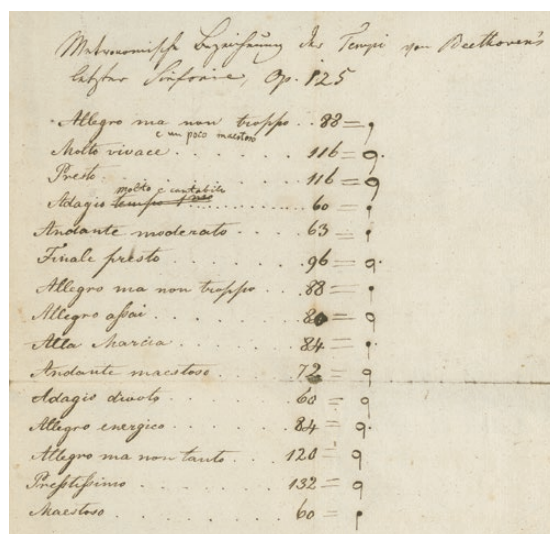 Metronomische Bezeichnung der Tempi von Beethoven's
letzter Sinfonie, Op. 125
Allegro ma non troppo . . 88 = 
e un poco maestoso
Molto vivace . . . . . . 116 = 
Presto . . . . . . . 116 = 
molto e cantabile
Adagio tempo 1mo . . . . . . 60 = 
Andante moderato . . . . 63 = 
Finale presto . . . . . . . 96 = 
Allegro ma non troppo . . . 88 = 
Allegro assai . . . . . . . 80 = 
Alla Marcia . . . . . . . 84 = 
Andante maestoso . . . . 72 = 
Adagio divoto . . . . . . . 60 = 
Allegro energico . . . . . . 84 = 
Allegro ma non tanto . . . 120 = 
Prestissimo . . . . . . . 132 = 
Maestoso . . . . . . . . 60 =